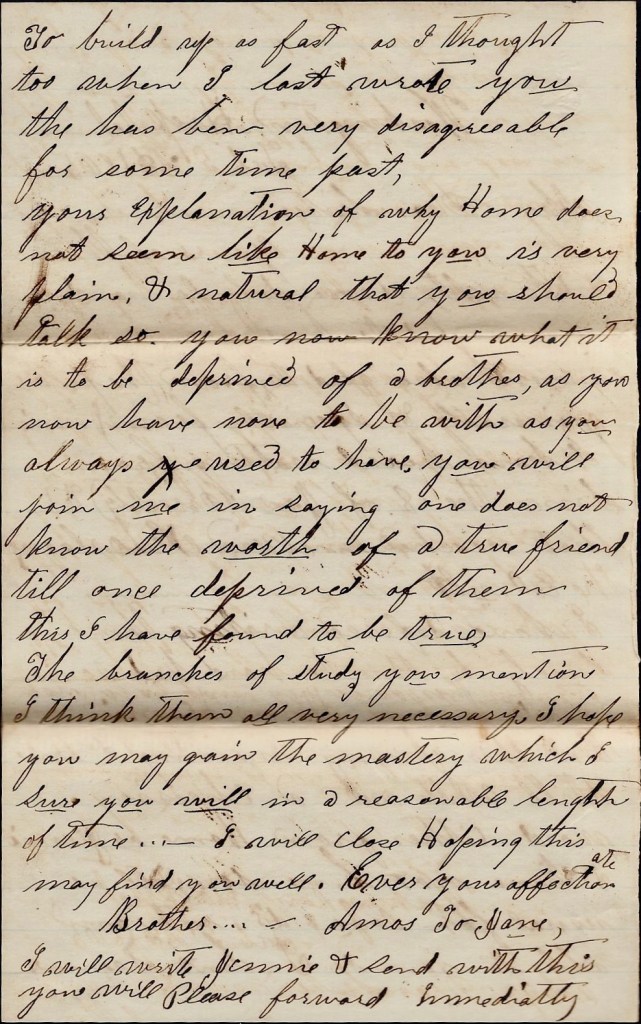 To build up as fast as I thought
too when I last wrote you
the has ben very disagreeable
for some time past,
your Explanation of why Home does
not seem like Home to you is very
plain, & natural that you should
talk so. you now know what it
is to be deprived of a brother, as you
now have none to be with as you
always used to have, you will
join me in saying one does not
know the worth of a true friend
till once deprived of them
this I have found to be true,
The branches of study you mention
I think them all very necessary, I hope
you may gain the mastery which I
sure you will in a reasonable lenght
of time...— I will Close Hoping this
may find you well. Ever your affectionate
Brother...— Amos To Jane,
I will write Jennie & send with this
you will Please forward Immediatly